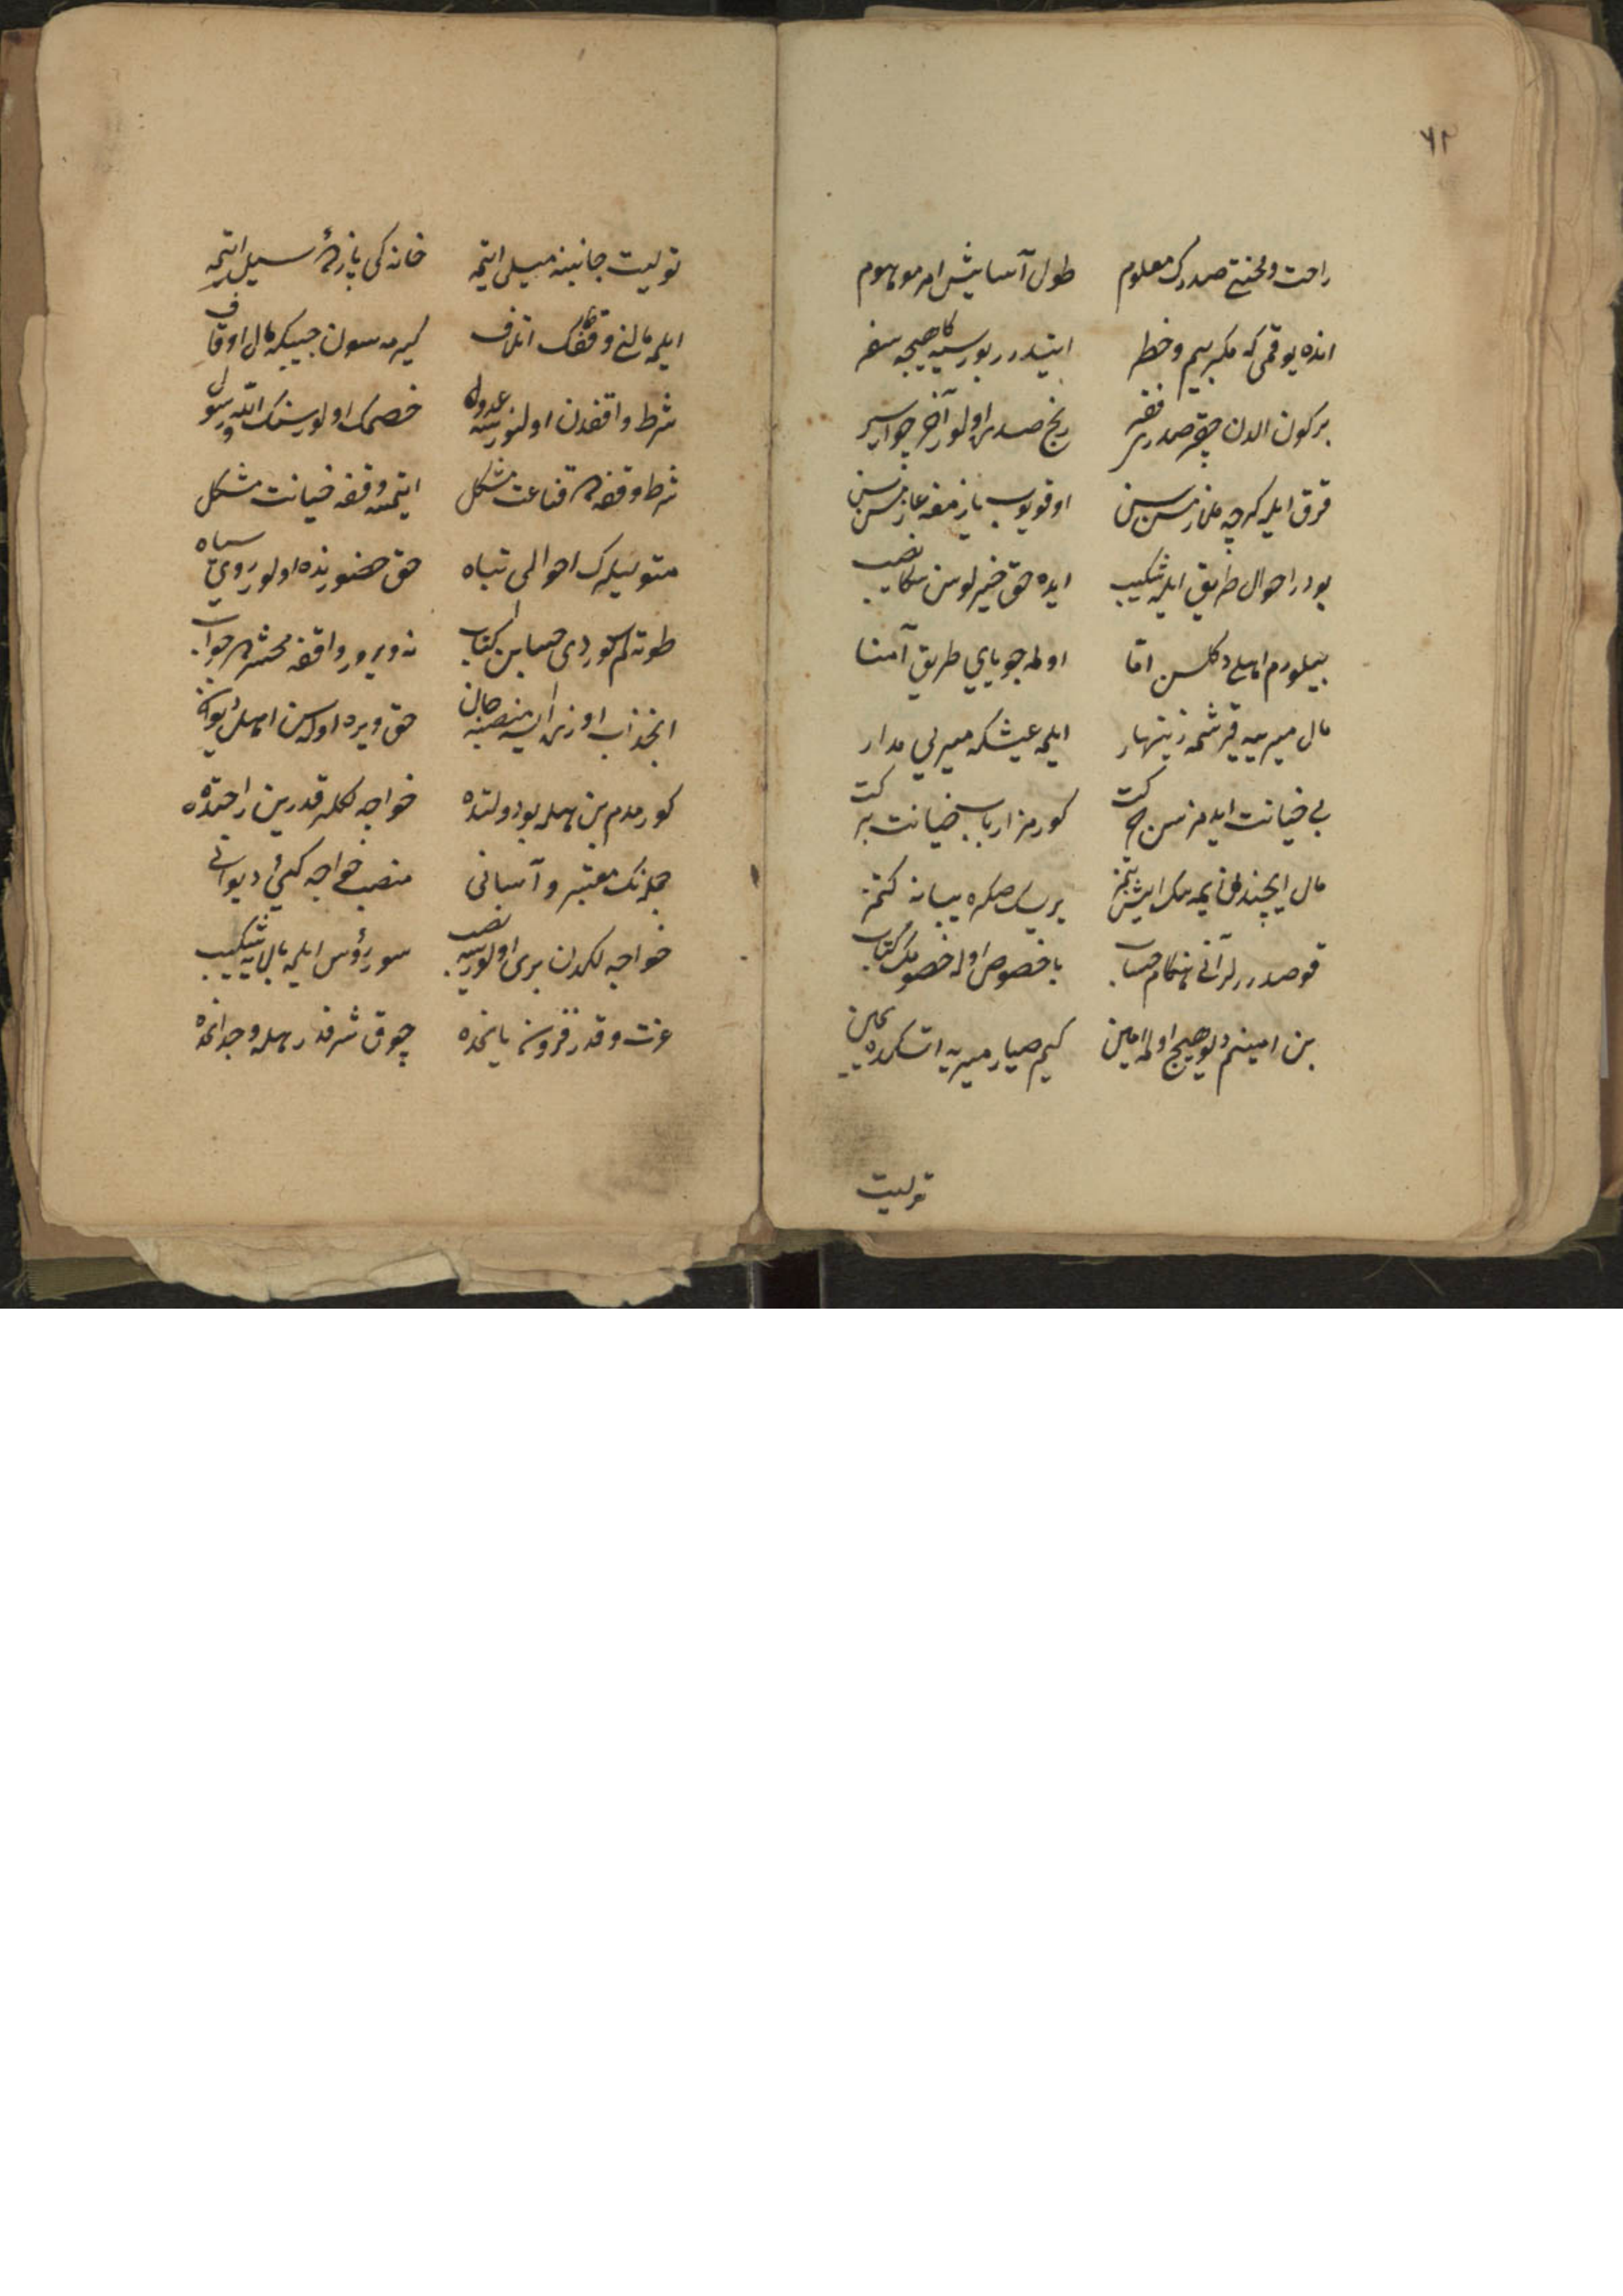 ٧٢
راحت و محنتی صدرک معلوم طول آسایش امر موهوم
انده یوقمی که مکر بیم و خطر ایتدرر بورسیه کاهیجه سفر
برکون الدن چقر صدر فقیر رنج صدری اولور آخر چو اسیر
فرق ایلر کرچه ملازمسن سن اوقویوب یازمغه عازمسن سن
بودر احوال طریق ایله شکیب ایده حق خیرلوسن سکا نصیب
بیلورم اهلی دکلسن اما اولمه جویای طریق آمنا
مال میرییه قرشمه زینهار ایلمه عیشکه میریی مدار
بی خیانت ایدمزسن حرکت کورمز ارباب خیانت برکت
مال ایچنده یمه مک ایش بتمز یریسک صکره یبانه کتمز
قوصدررلر آنی هنکام حساب باخصوص اوله خصومک کتاب
بن امینم دیو هیچ اولمه امین کیم صیار میریه اتسک ده یمین
تولیت
تولیت جانبنه میل ایتمه خانه کی پازدهٔ سیل ایتمه
ایلمه مالنی وقفک اتلاف کیرمه سون جیبکه مال اوقاف
شرط واقفدن اولنورسه عدول خصمک اولور سنک الله و رسول
شرط وقفه قناعت مشکل ایتمسه وقفه خیانت مشکل
متولیلرک احوالی تباه حق حضورنده اولور روی سیاه
طوته لم کوردی حسابن کتاب نه ویرور واقفه محشرده جواب
انجذاب اوزره ایسه منصبه جان حق ویره اوله سن اهل دیوان
کورمدم بن بویله بو دولتده خواجه لکلر قدرین راحتده
جمله نک معتبر و آسانی منصب خواجه کیٔ دیوانی
خواجه لکدن بری اولورسه نصیب سو رؤس ایلمه بالایه شکیب
عزت و قدر فزون یاننده چوق شرف در بیله وجداننده